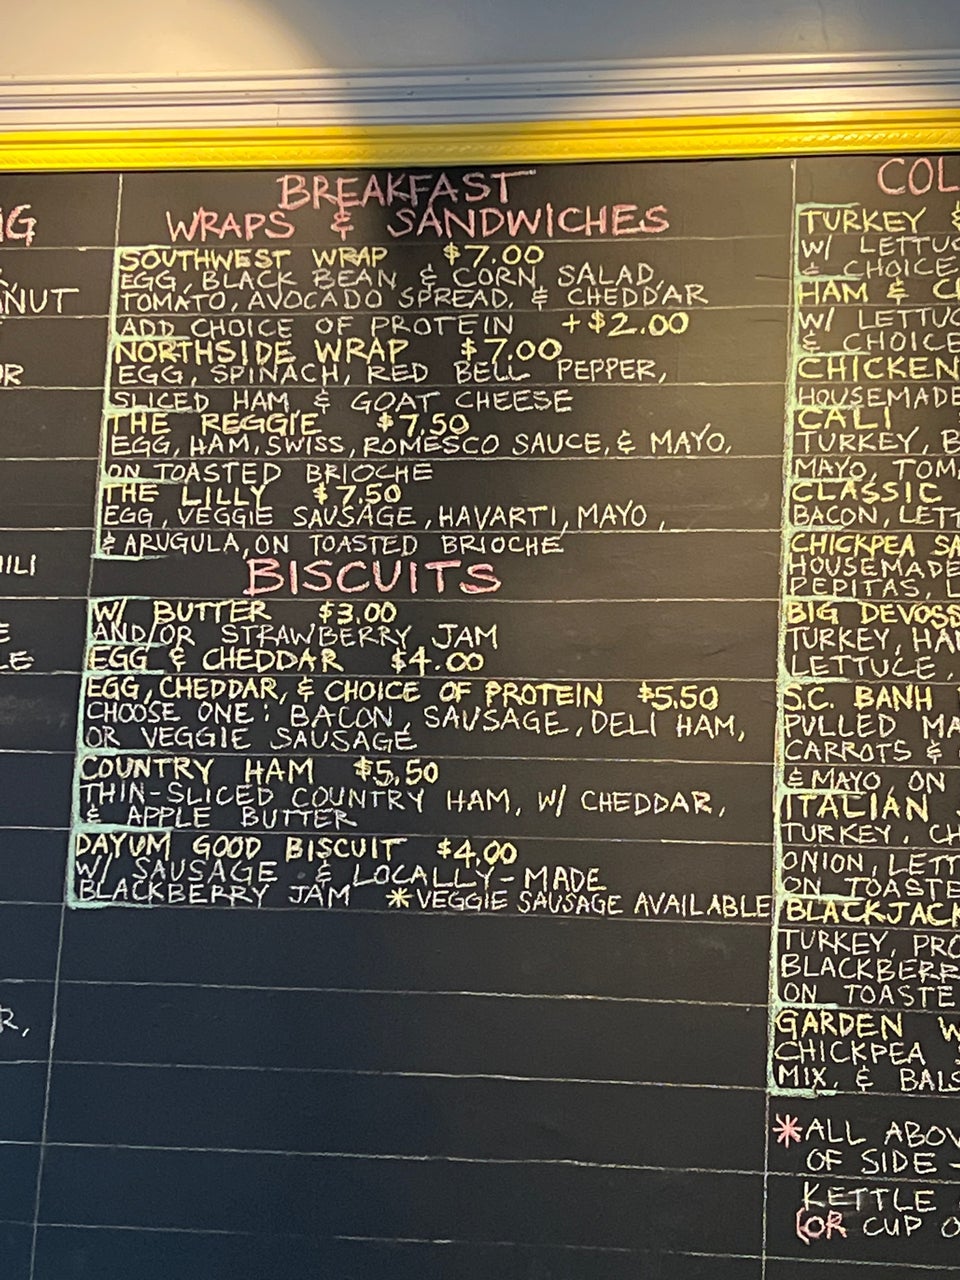 BREAKFAST
WRAPS & SANDWICHES
SOUTHWEST WRAP $7.00
EGG, BLACK BEAN & CORN SALAD,
TOMATO, AVOCADO SPREAD, & CHEDDAR
ADD CHOICE OF PROTEIN +$2.00
NORTHSIDE WRAP $7.00
EGG, SPINACH, RED BELL PEPPER,
SLICED HAM & GOAT CHEESE
THE REGGIE $7.50
EGG, HAM, SWISS, ROMESCO SAUCE, & MAYO,
ON TOASTED BRIOCHE
THE LILLY $7.50
EGG, VEGGIE SAUSAGE, HAVARTI, MAYO,
& ARUGULA, ON TOASTED BRIOCHE
BISCUITS
W/ BUTTER $3.00
AND/OR STRAWBERRY JAM
EGG & CHEDDAR $4.00
EGG, CHEDDAR, & CHOICE OF PROTEIN $5.50
CHOOSE ONE: BACON, SAUSAGE, DELI HAM,
OR VEGGIE SAUSAGE
COUNTRY HAM $5.50
THIN-SLICED COUNTRY HAM, W/ CHEDDAR,
& APPLE BUTTER
DAYUM GOOD BISCUIT $4.00
W/ SAUSAGE & LOCALLY-MADE
BLACKBERRY JAM *VEGGIE SAUSAGE AVAILABLE
COL
TURKEY &
W/ LETTUC
& CHOICE
HAM & C
W/ LETTUC
& CHOICE
CHICKEN
HOUSEMADE
CALI
TURKEY, B
MAYO, TOM
CLASSIC
BACON, LETT
CHICKPEA SA
HOUSEMADE
PEPITAS, L
BIG DEVOSS
TURKEY, HA
LETTUCE,
S.C. BANH
PULLED MA
CARROTS &
& MAYO, ON
ITALIAN
TURKEY, CH
ONION, LETT
ON TOASTE
BLACKJACK
TURKEY, PRO
BLACKBERR
ON TOASTE
GARDEN W
CHICKPEA
MIX, & BALS
*ALL ABOV
OF SIDE -
KETTLE
(OR CUP O